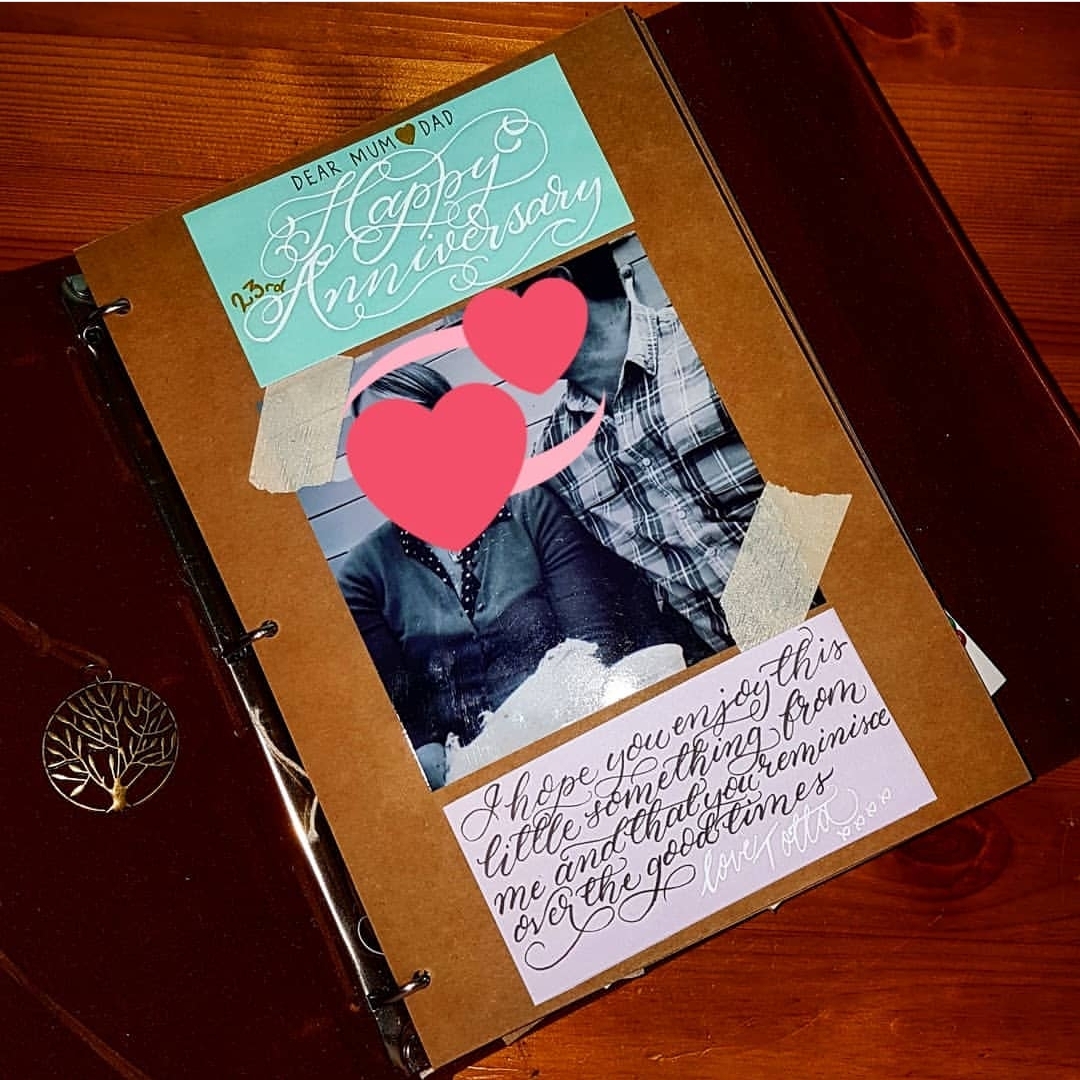 DEAR MUM DAD
Happy
23rd Anniversary
I hope you enjoy this
little something from
me and that you reminisce
over the good times
love Totta xxxx